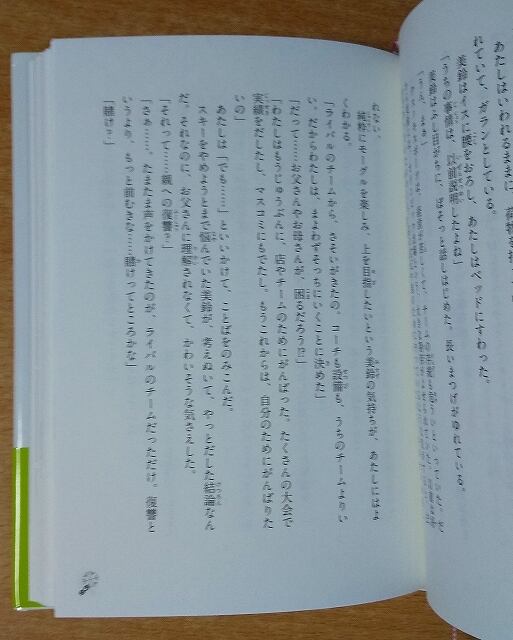 あたしはいわれるままに、荷物を
れていて、ガランとしている。
美鈴はイスに腰をおろし、あたしはベッドにすわった。
「うちの事情は、以前説明したよね」
美鈴は
長いまつげがゆれている。
れない。
純粋にモーグルを楽しみ、上を目指したいという美鈴の気持ちが、あたしにはよ
くわかる。
「ライバルのチームから、さそいがきたの。コーチも設備も、うちのチームよりい
い。だからわたしは、まよわずそっちにいくことに決めた」
「だって……お父さんやお母さんが、困るだろう!?」
「わたしはもうじゅうぶんに、店やチームのためにがんばった。たくさんの大会で
実績をだしたし、マスコミにもでたし、もうこれからは、自分のためにがんばりた
いの」
あたしは「でも……」といいかけて、ことばをのみこんだ。
スキーをやめようとまで悩んでいた美鈴が、考えぬいて、やっとだした結論なん
だ。それなのに、お父さんに理解されなくて、かわいそうな気さえした。
「それって……親への復讐？」
「さあ……。たまたま声をかけてきたのが、ライバルのチームだっただけ。復讐と
いうより、もっと前むきな……賭けってところかな」
「賭け？」